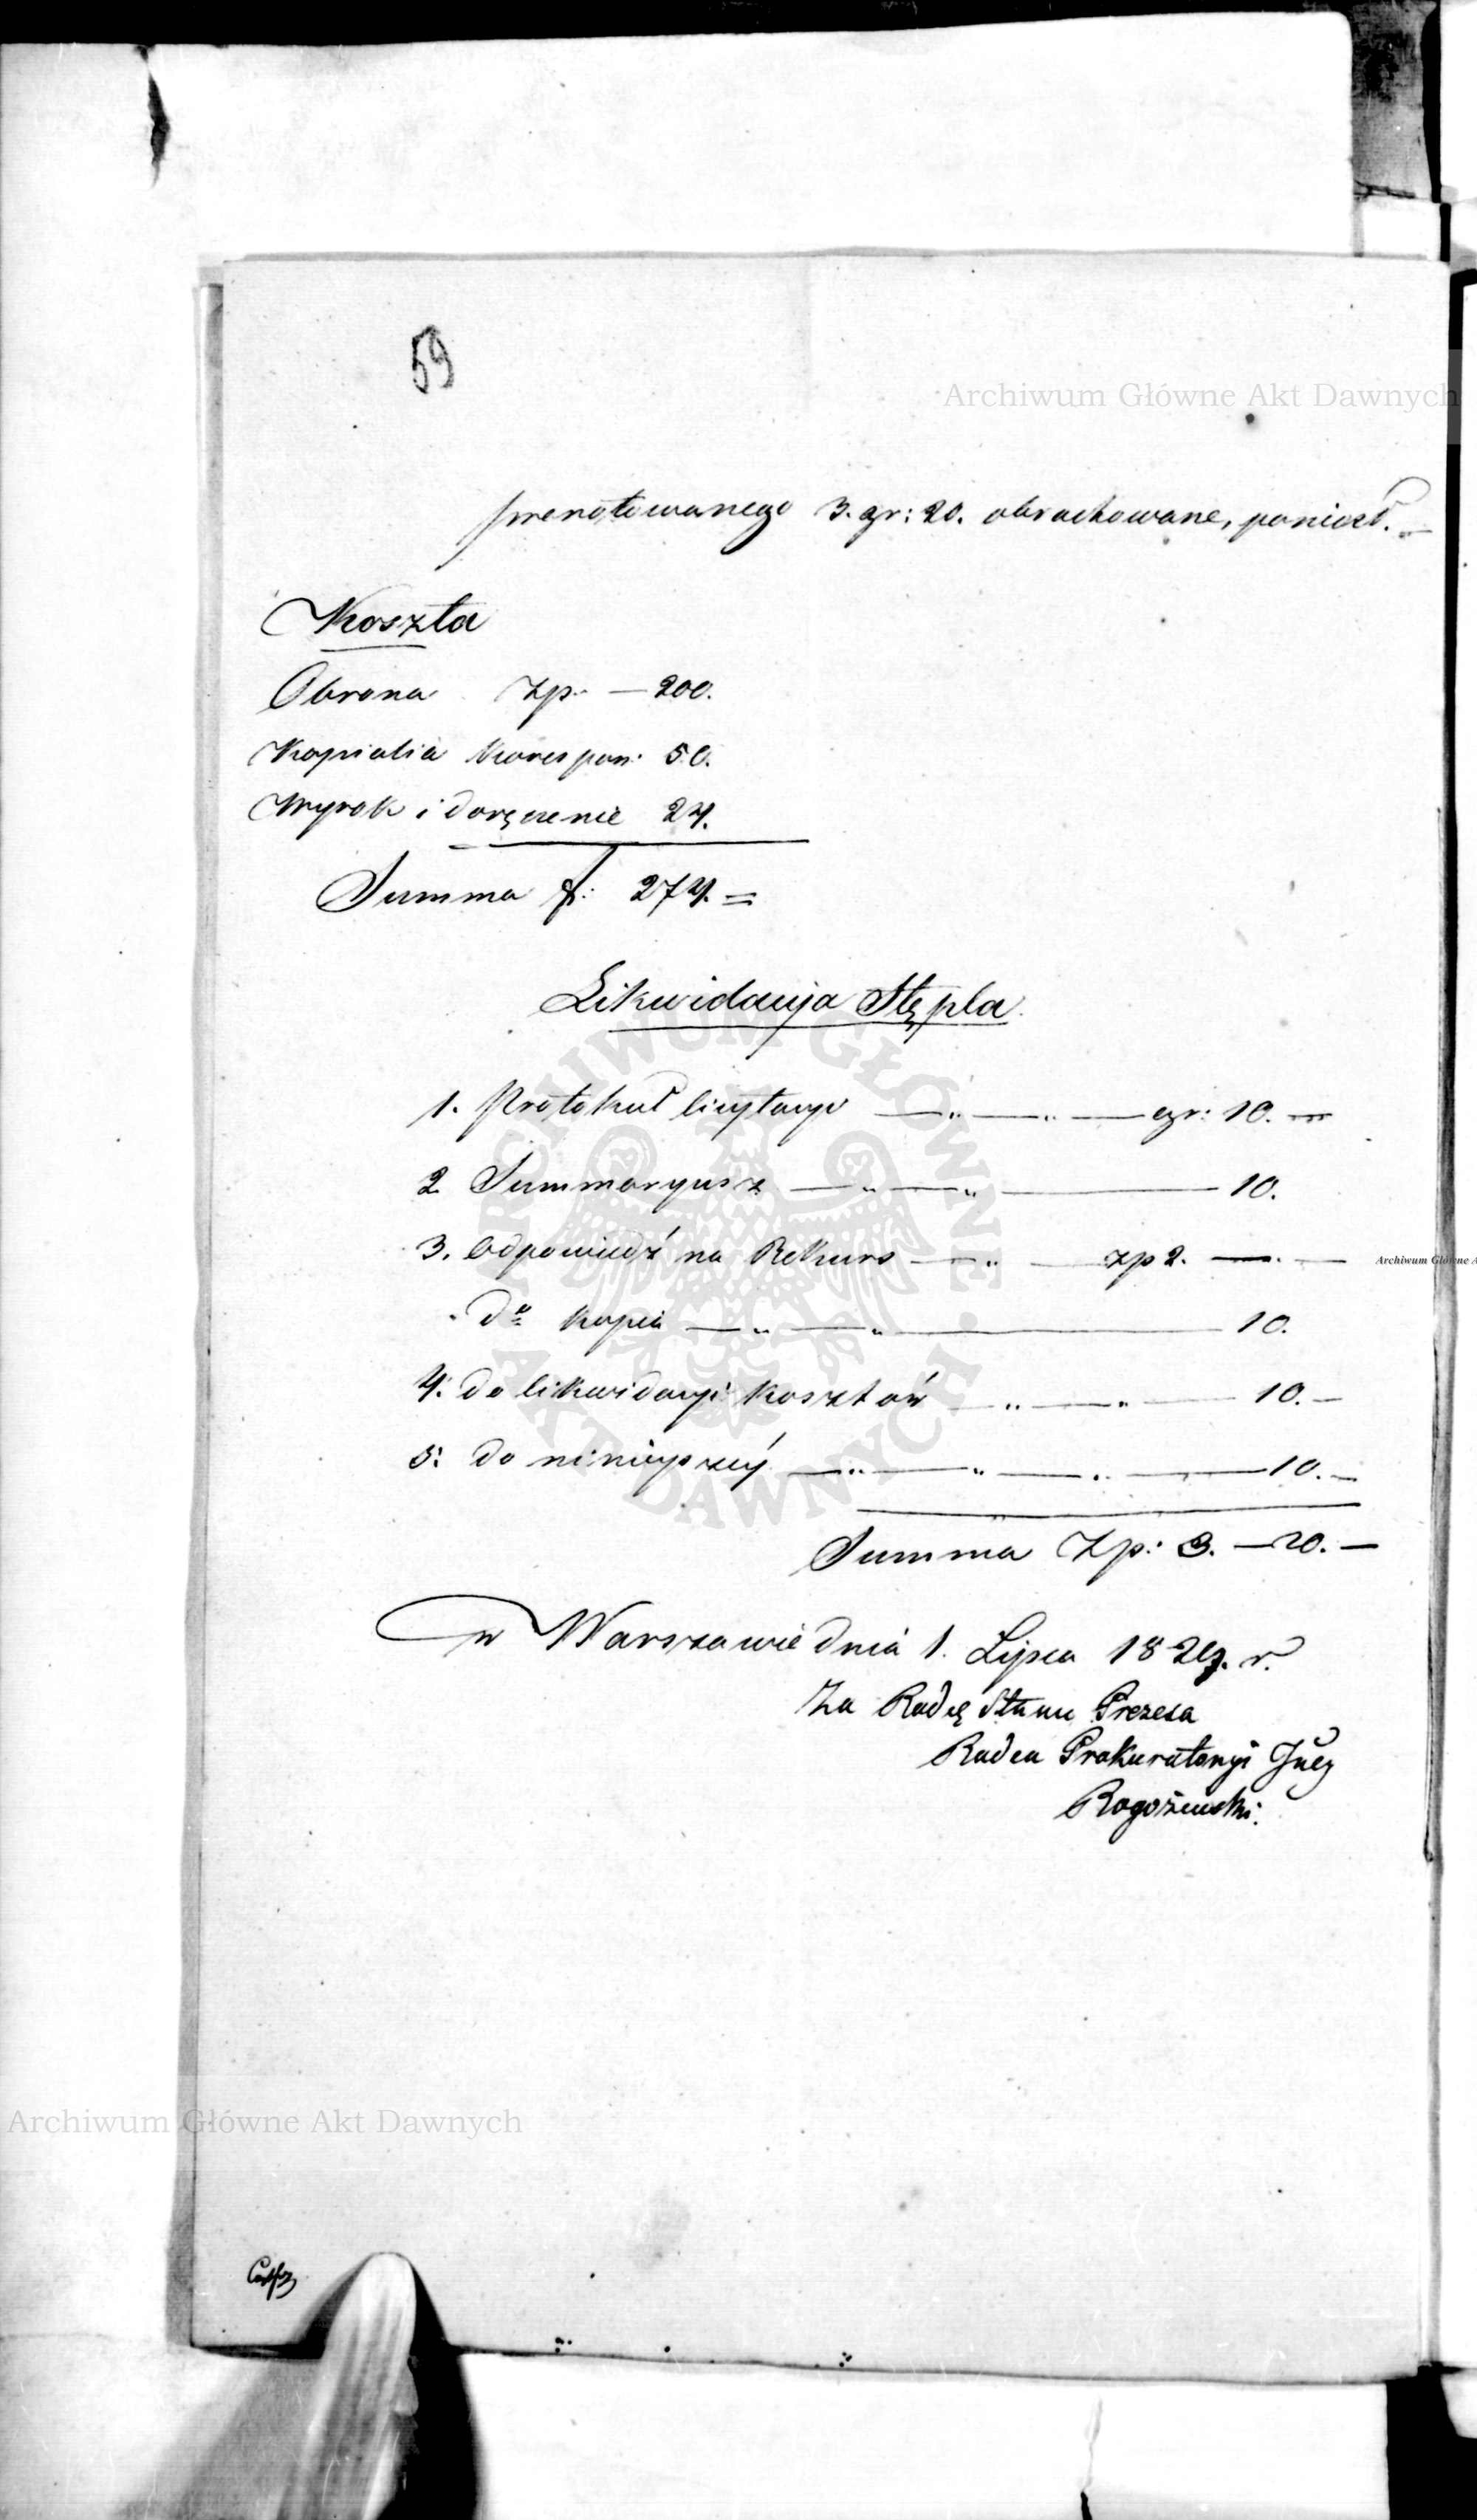 59
Archiwum Główne Akt Dawnych
prenotowanego 3. gr: 20. obrachowane, poniosł.
Koszta
Obrona Zp. — 200.
Kopialia korespon: 50.
Wyrok i doręczenie 24.
Summa f: 274. =
Likwidacya Stępla
1. Protokuł licytacyi — „ — „ — gr: 10. —
2. Summaryusz — „ — „ — 10.
3. Odpowiedź na Rekurs — „ — zp 2. — . —
do kopia — „ — „ — 10.
4. do likwidacyi kosztów — „ — „ — 10. —
5. do ninieyszéy — „ — „ — „ — 10. —
Summa Zp: 3. — 20. —
w Warszawie dnia 1. Lipca 1829. r.
Za Radcę Stanu Prezesa
Radca Prokuratoryi Jnéy
Rogoziński.
ARCHIWUM GŁÓWNE AKT DAWNYCH
Archiwum Główne A
Archiwum Główne Akt Dawnych